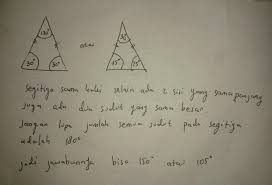 120° atau 30°
30° 30° 75° 75°
segitiga sama kaki selain ada 2 sisi yang sama panjang
juga ada dua sudut yang sama besar
jangan lupa jumlah semua sudut pada segitiga
adalah 180°
jadi jawabannya bisa 150° atau 105°